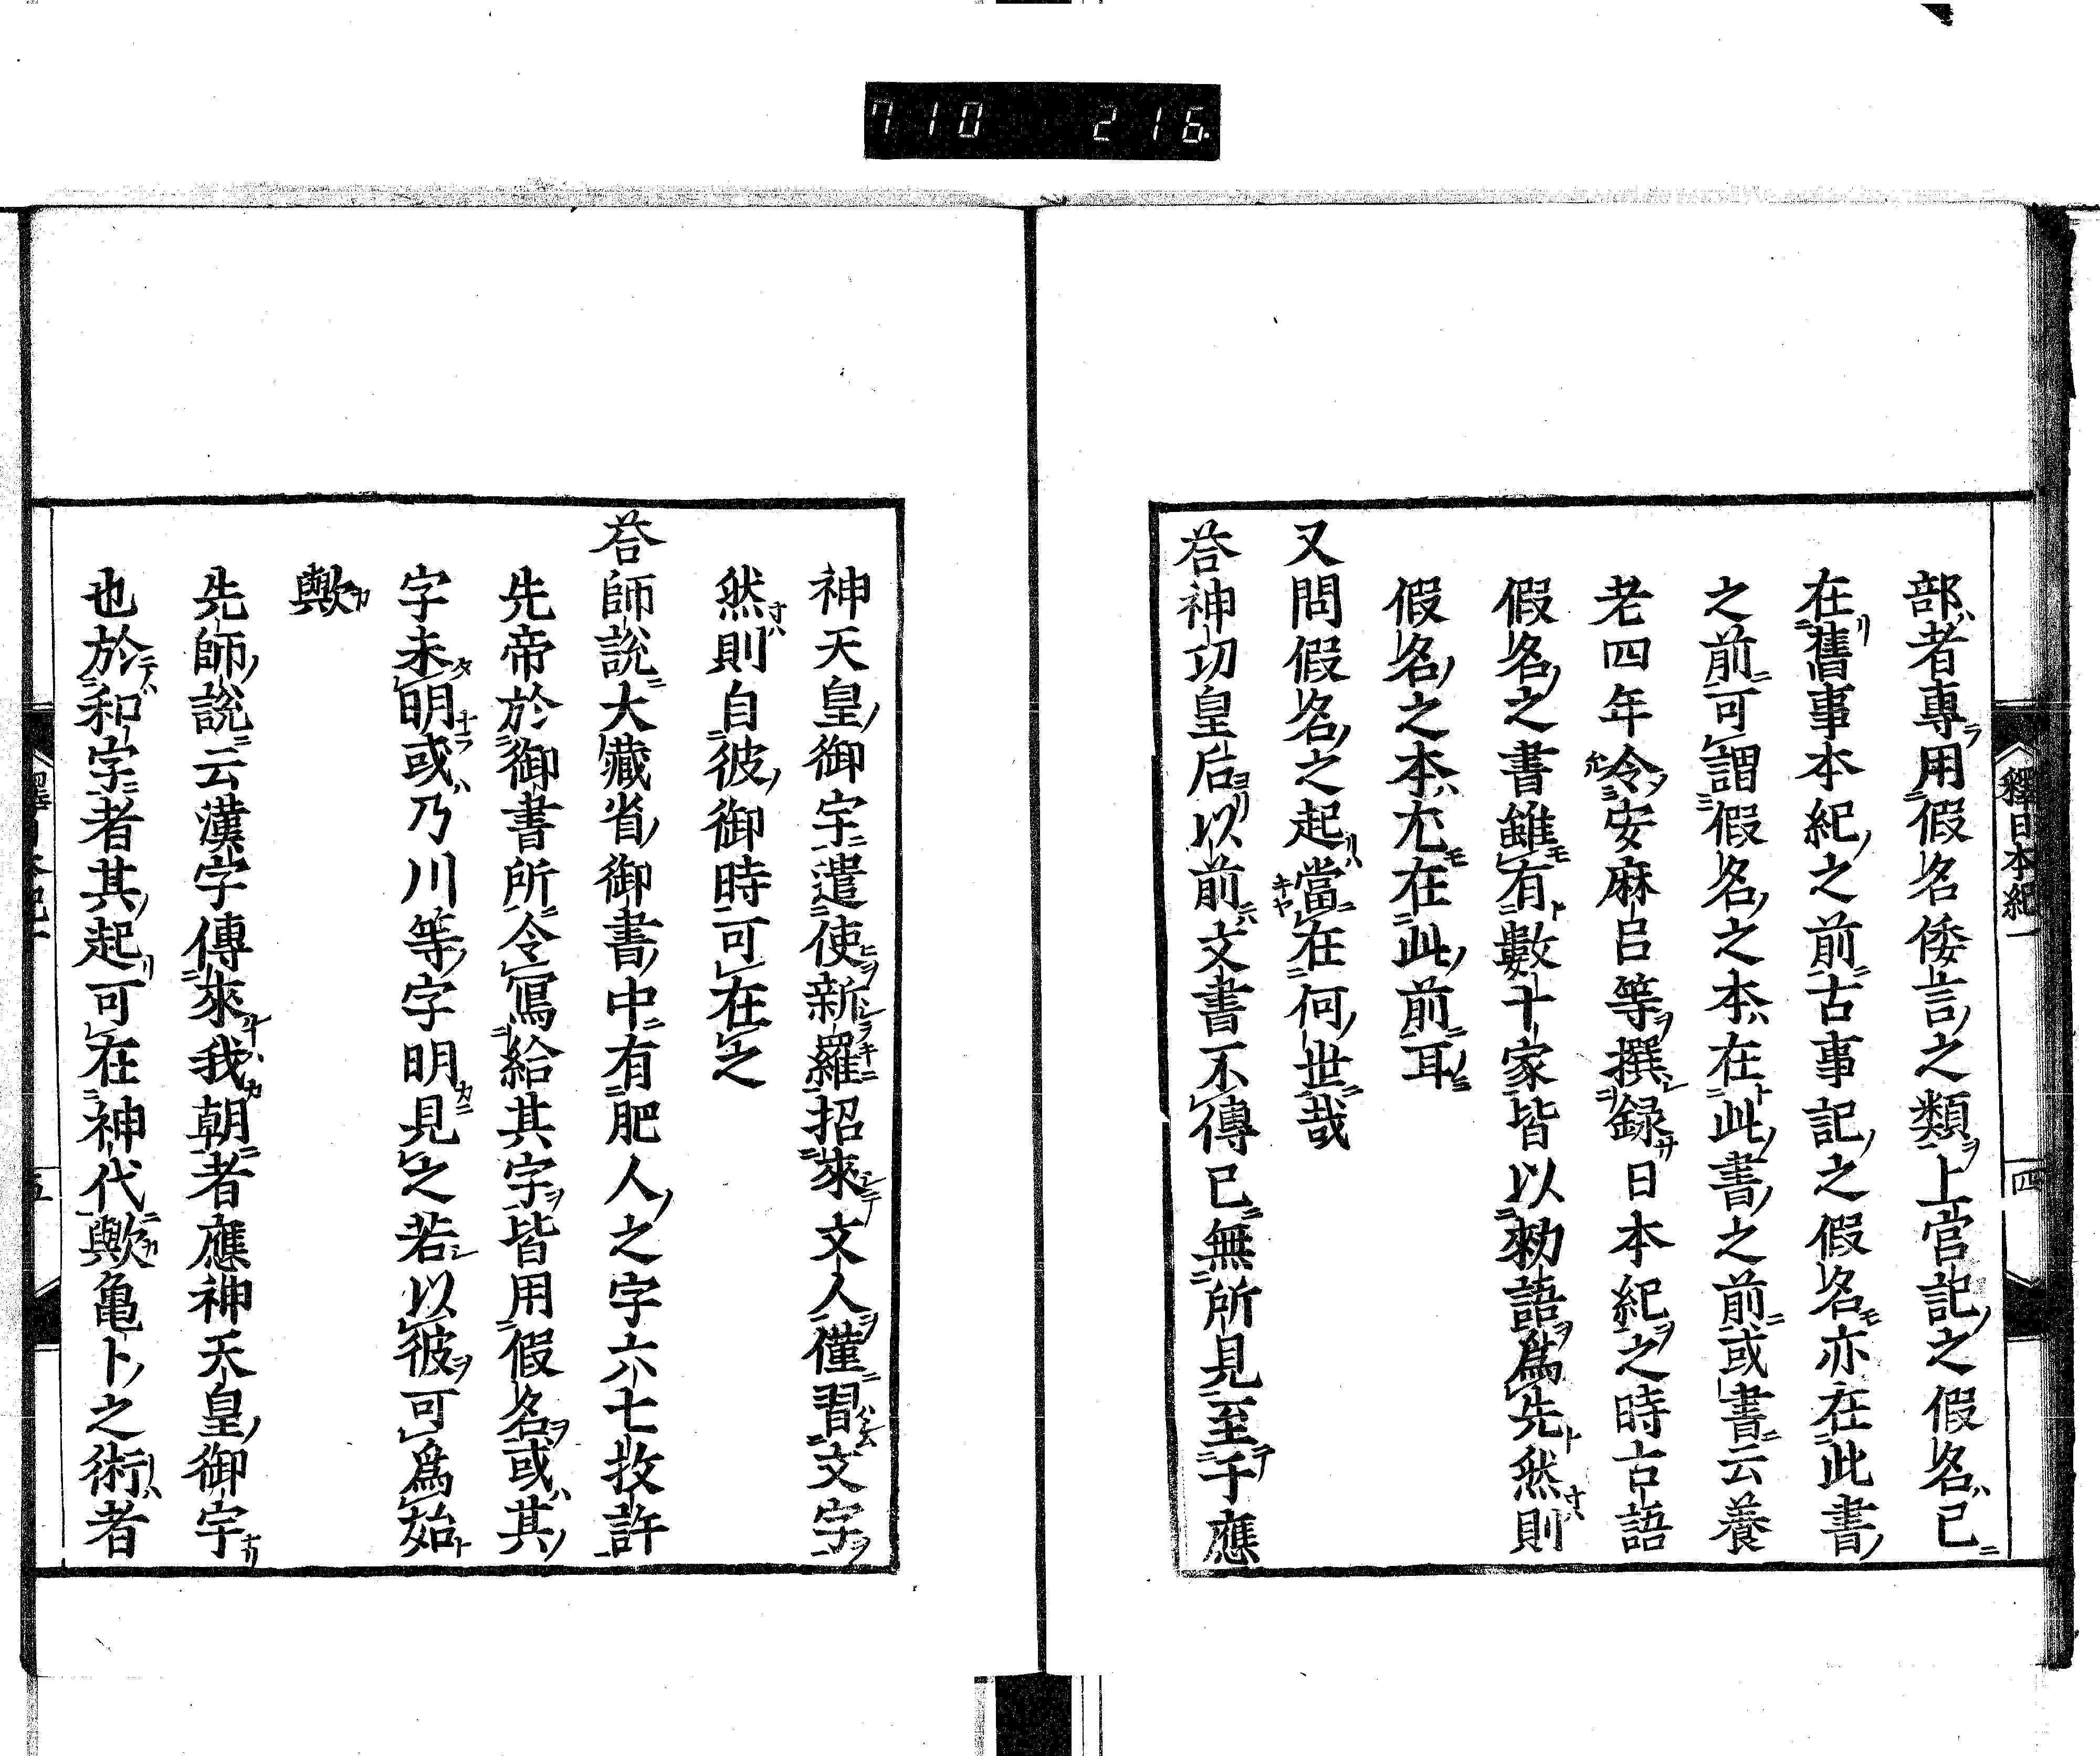 710 216.
釋日本紀一
四
部者專用假名倭言之類上官記之假名已
在舊事本紀之前古事記之假名亦在此書
之前可謂假名之本在此書之前或書云養
老四年令安麻呂等撰録日本紀之時古語
假名之書雖有數十家皆以勑語爲先然則
假名之本尤在此前耳
又問假名之起當在何世哉
荅神功皇后以前文書不傳已無所見至于應
神天皇御宇遣使新羅招來文人僅習文字
然則自彼御時可在之
荅師說大藏省御書中有肥人之字六七枚許
先帝於御書所令寫給其字皆用假名或其
字未明或乃川等字明見之若以彼可爲始
歟
先師說云漢字傳來我朝者應神天皇御宇
也於和字者其起可在神代歟亀卜之術者
五